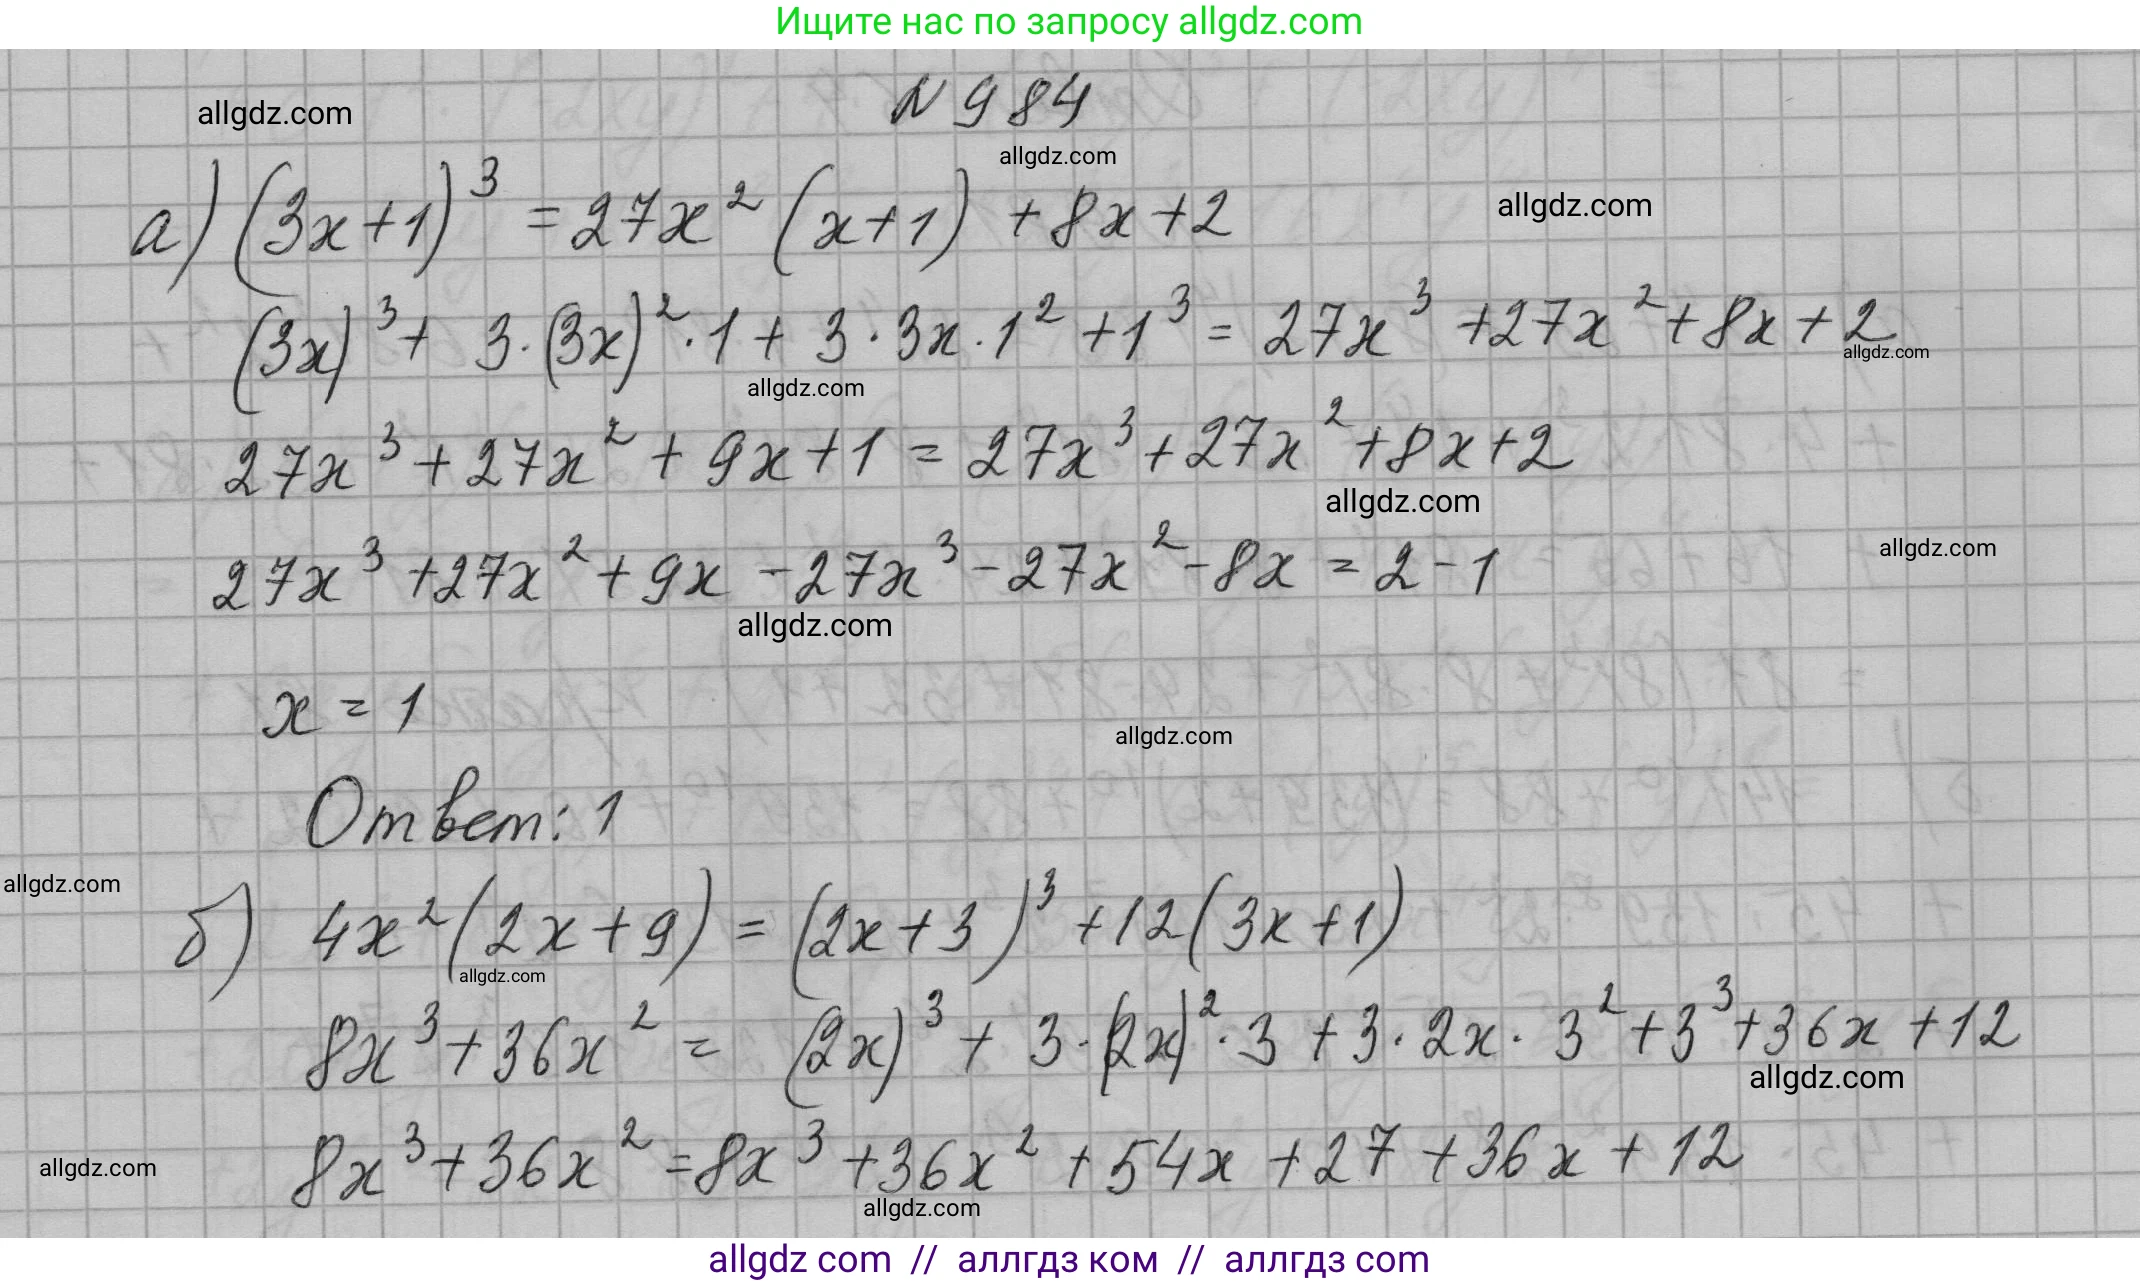 Ищите нас по запросу allgdz.com
N 984
allgdz.com
allgdz.com
а) (3x+1)³ = 27x² (x+1) + 8x + 2
allgdz.com
(3x)³ + 3·(3x)²·1 + 3·3x·1² + 1³ = 27x³ + 27x² + 8x + 2
allgdz.com
allgdz.com
27x³ + 27x² + 9x + 1 = 27x³ + 27x² + 8x + 2
allgdz.com
allgdz.com
27x³ + 27x² + 9x - 27x³ - 27x² - 8x = 2 - 1
allgdz.com
x = 1
allgdz.com
Ответ: 1
allgdz.com
б) 4x² (2x + 9) = (2x + 3)³ + 12 (3x + 1)
allgdz.com
8x³ + 36x² = (2x)³ + 3·(2x)²·3 + 3·2x·3² + 3³ + 36x + 12
allgdz.com
8x³ + 36x² = 8x³ + 36x² + 54x + 27 + 36x + 12
allgdz.com
allgdz.com
allgdz com // аллгдз ком // аллгдз com